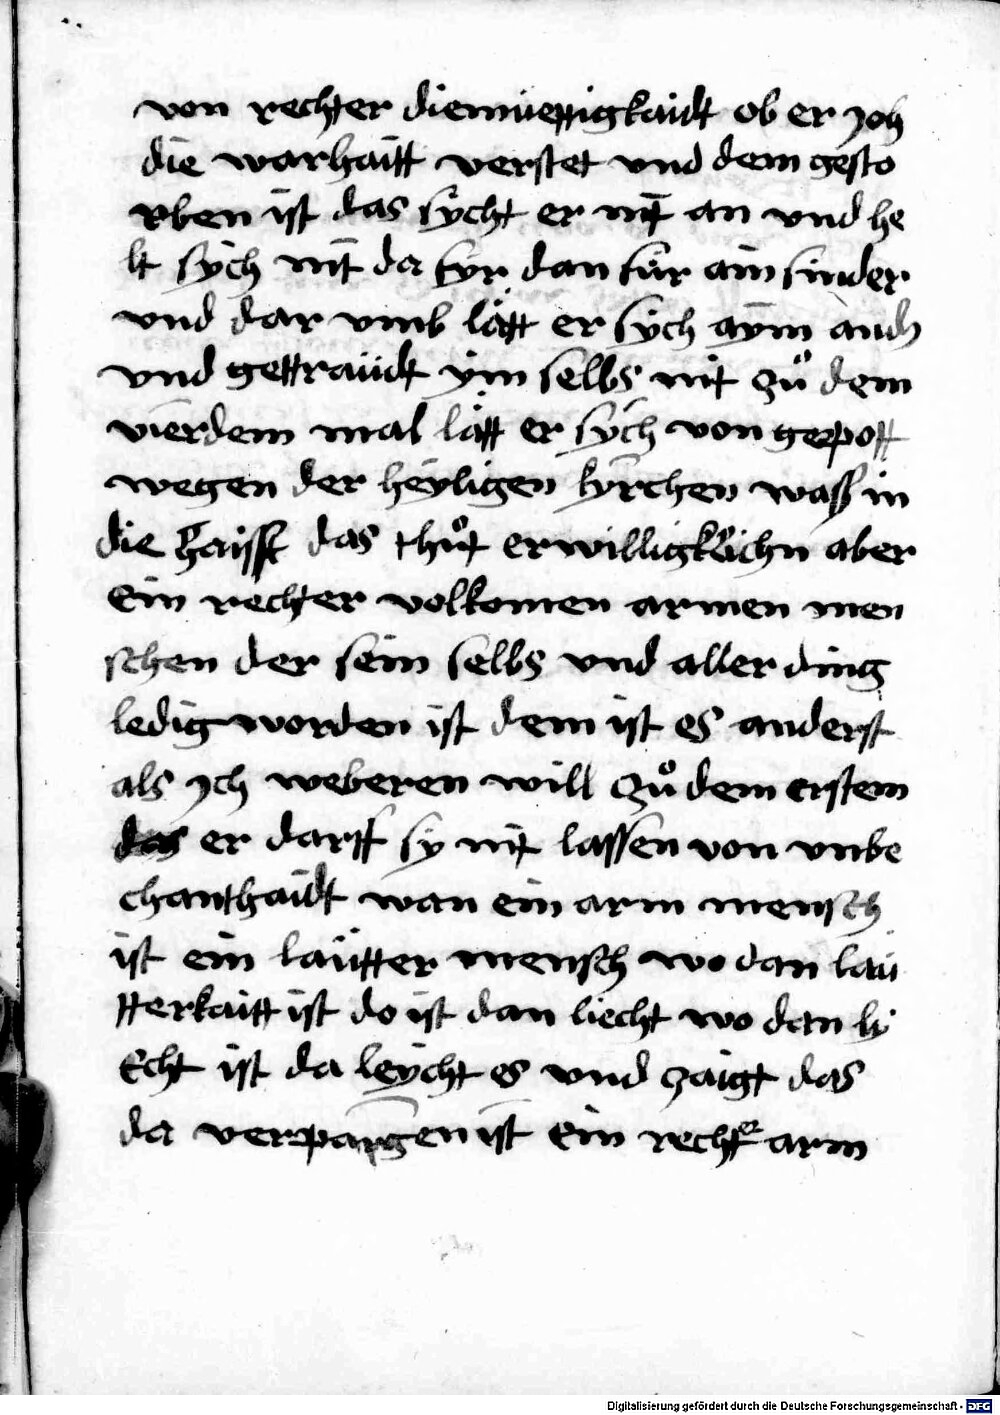 von rechter diemüettigkaidt ob er joh
die warhaitt verstet vnd dem gesto
rben ist das sÿcht er nit an vnd he
lt sÿch nit da fyr dan für ain sinder
vnd dar vmb lätt er sÿch aym andh
vnd gettraüdt ÿm selbs nit zů dem
vierdem mal lätt er sÿch von gepott
wegen der heÿligen kyrchen wass in
die haisst das thůt er willigklichn aber
Ein rechter volkomen armen men
schen der sein selbs vnd aller ding
ledig worden ist dem ist es anderst
als jch weberen will Zů dem erstem
das er darff sy nit lassen von vnbe
chanthaidt wan ein arm mensch
ist ein laütter mensch wo dan laü
tterkaitt ist do ist dan liecht wo dan ly
Echt ist da leÿcht es vnd zaigt das
da verpargen ist Ein rechter arm
Digitalisierung gefördert durch die Deutsche Forschungsgemeinschaft - DFG